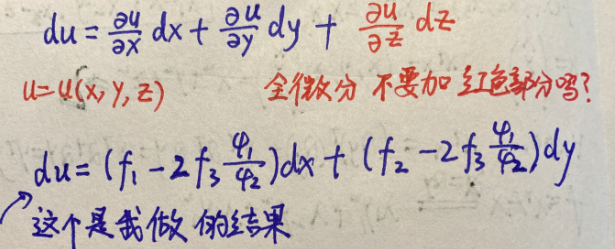 du = ∂u/∂x dx + ∂u/∂y dy + ∂u/∂z dz
u=u(x,y,z) 全微分 不要加红色部分吗?
du = (f₁ - 2f₃ φ₁/φ₂)dx + (f₂ - 2f₃ φ₁/φ₂)dy
这个是我做的结果